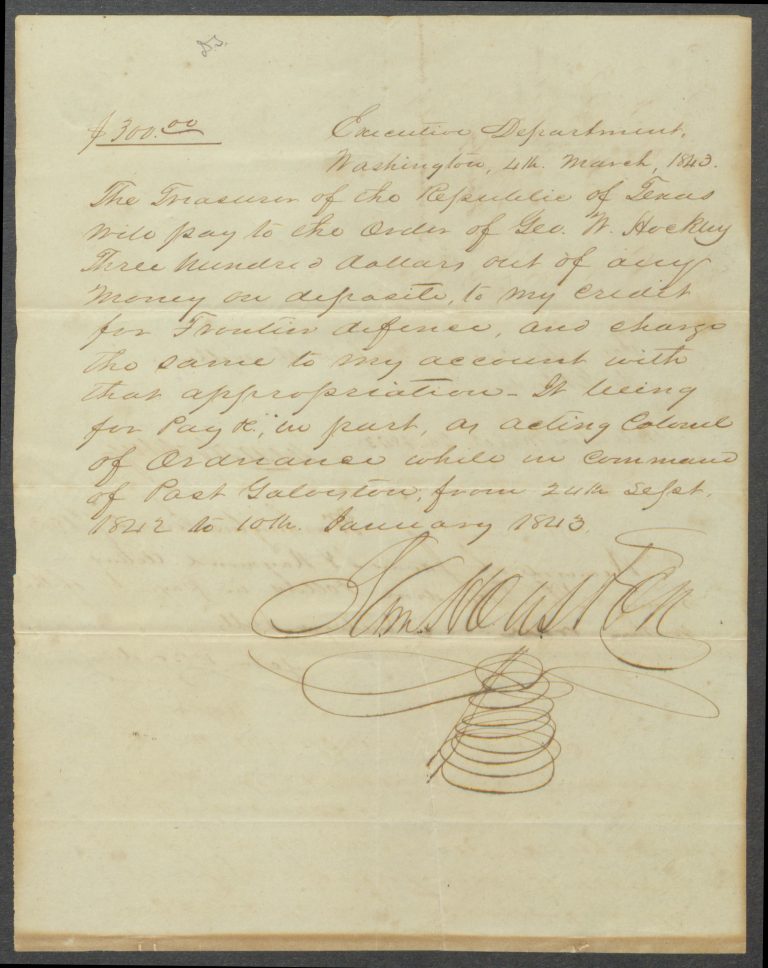 D.S.
$300.00 Executive Department,
Washington, 4th. March, 1843.
The Treasurer of the Republic of Texas
will pay to the Order of Geo. W. Hockley
Three hundred dollars, out of any
money on deposite, to my credit
for Frontier defence, and charge
the same to my account with
that appropriation - It being
for Pay &c., in part, as acting Colonel
of Ordnance while in command
of Post Galveston, from 24th Sept.
1842 to 10th. January 1843.
Sam Houston